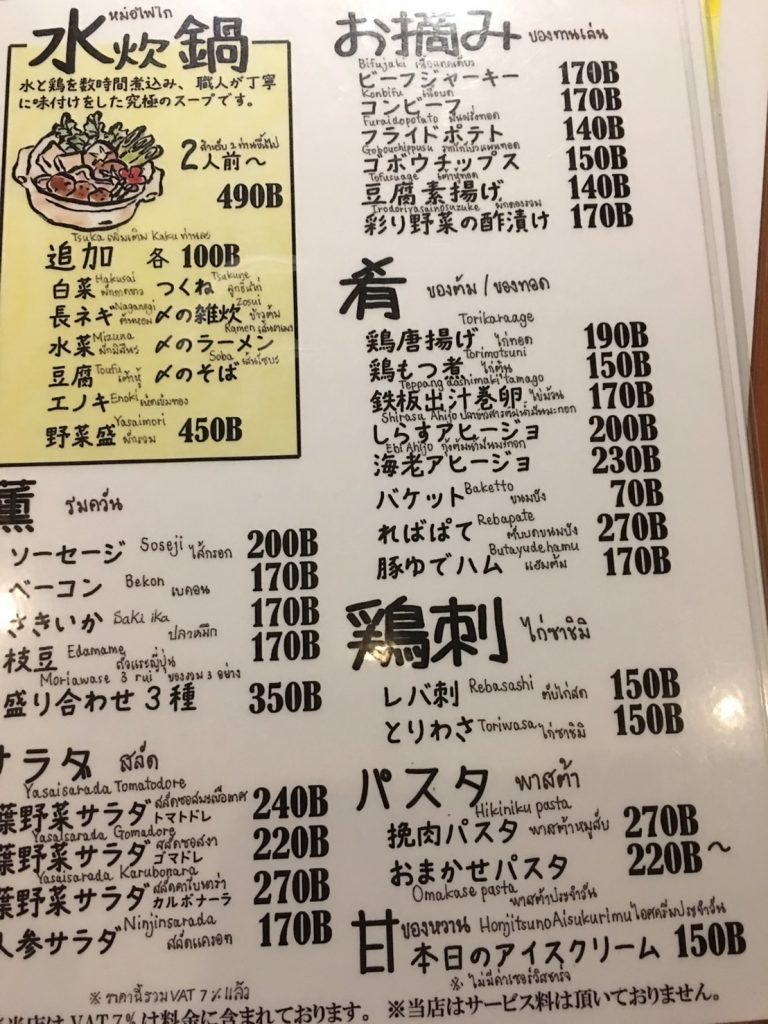 หม้อไฟไก่
水炊鍋
水と鶏を数時間煮込み、職人が丁寧
に味付けをした究極のスープです。
สำหรับ 2 ท่านขึ้นไป
2人前〜
490B
Tsuika เพิ่มเติม Kaku ท่านละ
追加 各 100B
白菜 Hakusai ผักกาดขาว つくね Tsukune ลูกชิ้นไก่
長ネギ Naganegi ต้นหอม 〆の雑炊 Zosui ข้าวต้ม
水菜 Mizuna ผักมิสึนะ 〆のラーメン Ramen เส้นราเมง
豆腐 Toufu เต้าหู้ 〆のそば Soba เส้นโซบะ
エノキ Enoki เห็ดเข็มทอง
野菜盛 Yasaimori ผักรวม 450B
薫 รมควัน
ソーセージ Soseji ไส้กรอก 200B
ベーコン Bekon เบคอน 170B
さきいか Saki ika ปลาหมึก 170B
枝豆 Edamame ถั่วแระญี่ปุ่น 170B
Moriawase 3 rui ของรวม 3 อย่าง
盛り合わせ3種 350B
サラダ สลัด
Yasaisarada Tomatodore สลัดซอสมะเขือเทศ
葉野菜サラダ トマトドレ 240B
Yasaisarada Gomadore สลัดซอสงา
葉野菜サラダ ゴマドレ 220B
Yasaisarada Karubonara สลัดคาโบนาร่า
葉野菜サラダ カルボナーラ 270B
Ninjinsarada
人参サラダ สลัดแครอท 170B
※ ราคานี้รวม VAT 7% แล้ว
お摘み ของทานเล่น
Bifujaki
ビーフジャーキー 170B
Konbifu
コンビーフ 170B
Furaidopotato มันฝรั่งทอด
フライドポテト 140B
Gobouchippusu
ゴボウチップス 150B
Tofusuage เต้าหู้ทอด
豆腐素揚げ 140B
Irodoriyasainosuzuke ผักดองรวม
彩り野菜の酢漬け 170B
肴 ของต้ม / ของทอด
Torikaraage
鶏唐揚げ ไก่ทอด 190B
Torimotsuni
鶏もつ煮 ไก่ตุ๋น 150B
Teppang dashimaki tamago
鉄板出汁巻卵 ไข่ม้วน 170B
Shirasu Ahijo
しらすアヒージョ 200B
Ebi Ahijo
海老アヒージョ 230B
バケット Baketto ขนมปัง 70B
ればぱて Rebapate ตับบดขนมปัง 270B
Butayudehamu
豚ゆでハム แฮมต้ม 170B
鶏刺 ไก่ซาชิมิ
レバ刺 Rebasashi ตับไก่สด 150B
とりわさ Toriwasa ไก่ซาชิมิ 150B
パスタ พาสต้า
Hikiniku pasta
挽肉パスタ พาสต้าหมูสับ 270B
おまかせパスタ 220B〜
Omakase pasta พาสต้าประจำวัน
甘 ของหวาน Honjitsuno Aisukurimu ไอศครีมประจำวัน
本日のアイスクリーム 150B
※ ไม่มีค่าเซอร์วิสชาร์จ
※当店は VAT 7%は料金に含まれております。 ※当店はサービス料は頂いておりません。